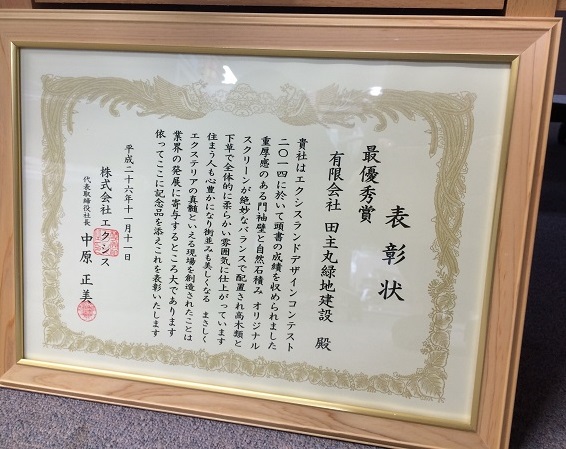 表彰状
最優秀賞
有限会社 田主丸緑地建設 殿
貴社はエクシスランドデザインコンテスト
二〇一四に於いて頭書の成績を収められました
重厚感のある門袖壁と自然石積み オリジナル
スクリーンが絶妙なバランスで配置され高木類と
下草で全体的に柔らかい雰囲気に仕上がっています
住まう人も心豊かになり街並みも美しくなる まさしく
エクステリアの真髄といえる現場を創造されたことは
業界の発展に寄与するところ大であります
依ってここに記念品を添えこれを表彰いたします
平成二十六年十一月十一日
株式会社エクシス
代表取締役社長 中原正美